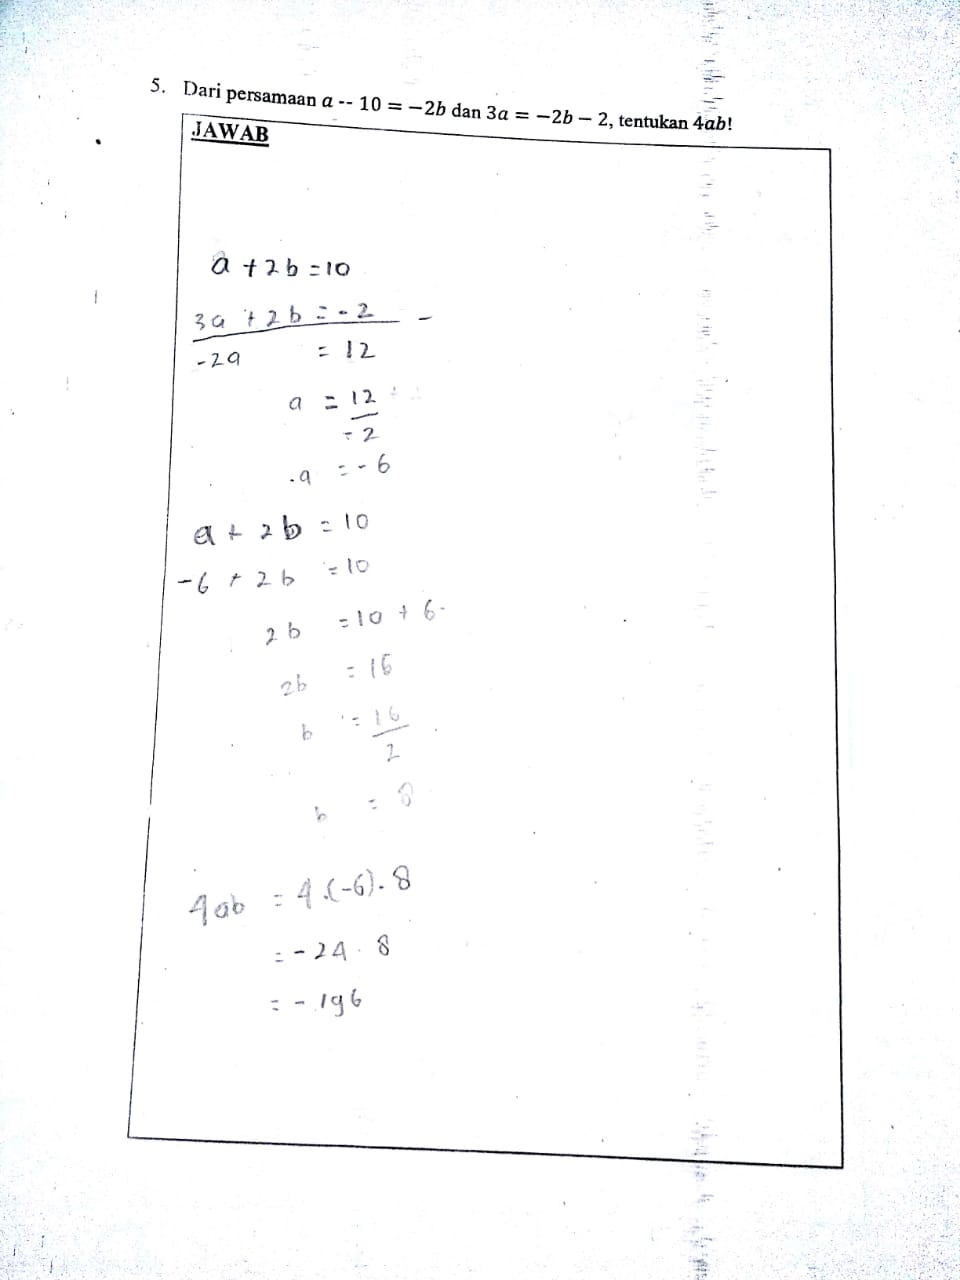 5. Dari persamaan a -- 10 = −2b dan 3a = −2b − 2, tentukan 4ab!
JAWAB
a + 2b = 10
3a + 2b = -2 -
-2a = 12
a = 12
-2
a = -6
a + 2b = 10
-6 + 2b = 10
2b = 10 + 6
2b = 16
b = 16
2
b = 8
4ab = 4.(-6).8
= -24 . 8
= -196